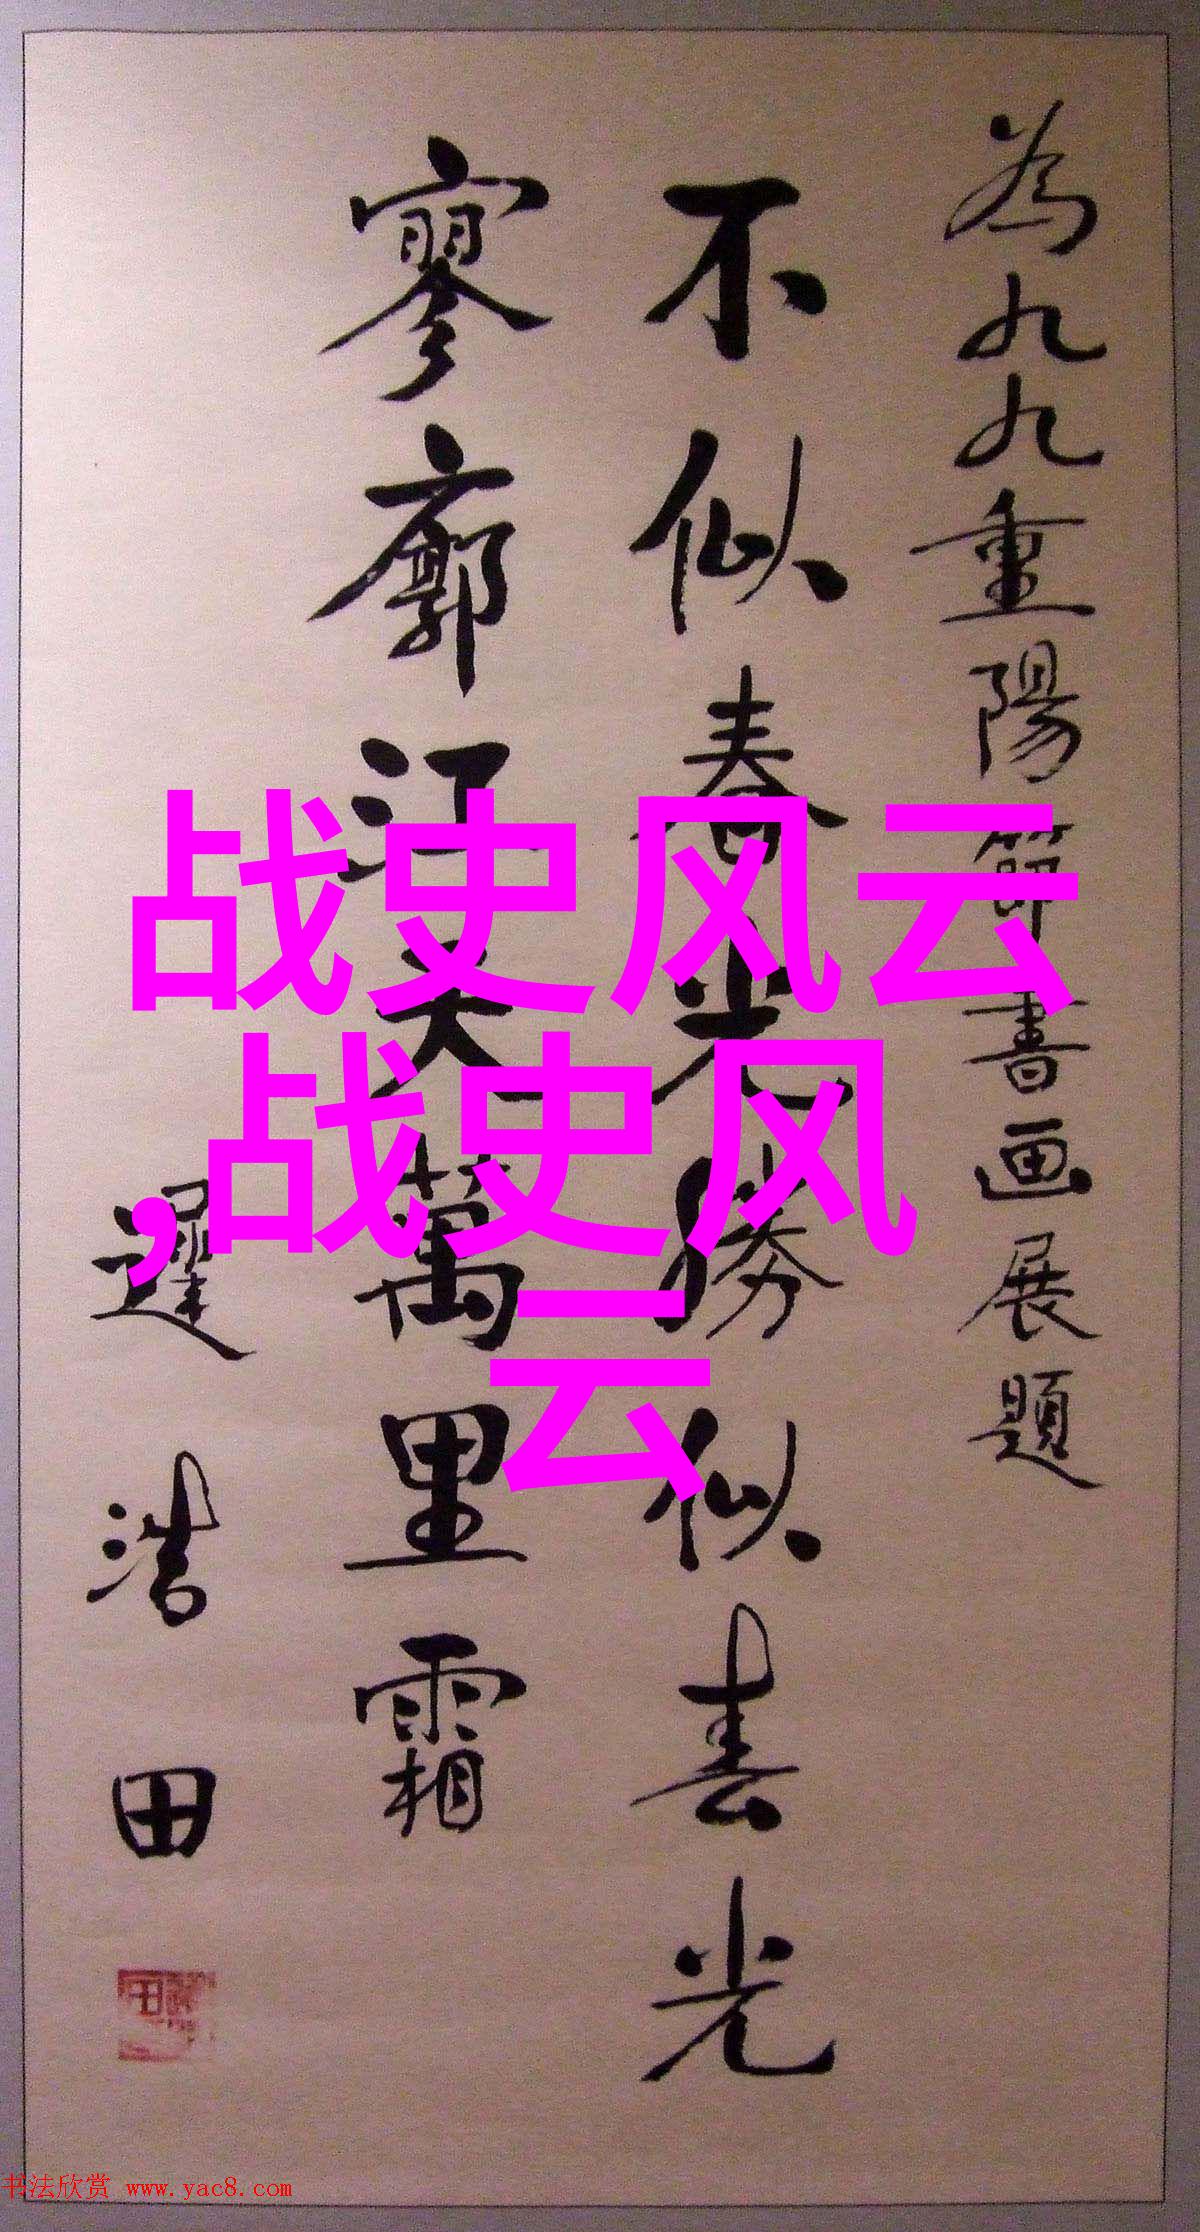 為九九重陽節書画展題
不似春光勝似春光
寥廓江天萬里霜
遲浩田
战史风云
,战史风
云
书法欣赏 www.yac8.com